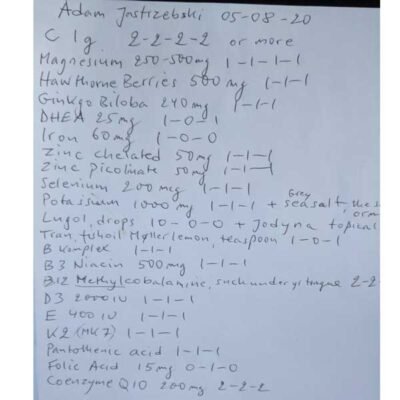 Adam Jastrzebski 05-08-20
C 1g 2-2-2-2 or more
Magnesium 250-500mg 1-1-1-1
Hawthorne Berries 500mg 1-1-1
Ginkgo Biloba 240mg 1-1-1
DHEA 25mg 1-0-1
Iron 60mg 1-0-0
Zinc chelated 50mg 1-1-1
Zinc picolinate 50mg 1-1-1
Selenium 200mcg 1-1-1
Potassium 1000mg 1-1-1 + Grey seasalt, the s
orm
Lugol, drops 10-0-0 + Jodyna topical
Tran, fishoil Möller lemon, teaspoon 1-0-1
B komplex 1-1-1
B3 Niacin 500mg 1-1-1
B12 Methylcobalamine, such under ys tongue 2-2-
D3 2000 IU 1-1-1
E 400 IU 1-1-1
K2 (MK7) 1-1-1
Pantothenic acid 1-1-1
Folic Acid 15mg 0-1-0
Coenzyme Q10 200mg 2-2-2